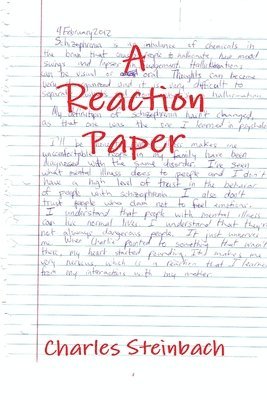 4 February 2012
Schizophrenia is an imbalance of chemicals in
the brain that people to hallucinate, have mood
swings and lapses in judgement. Hallucinations
can be visual or oral. Thoughts can become
and it is very difficult to
separate hallucination.
A
Reaction
Paper
My definition of schizophrenia hasn't changed,
as that one was the one I learned in psycholo
I'll be makes me
uncomfortable. People in my family have been
diagnosed with the same disorder. I've seen
what mental illness does to people and I don't
have a high level of trust in the behavior
of people with schizophrenia. I also don't
trust people who claim not to feel emotion.
I understand that people with mental illness
can live normal lives. I understand that they're
not always dangerous people. It just unnerves
me. When Charlie pointed to something that wasn't
there, my heart started pounding. It makes me
very nervous which is a reaction that I learned
from my interactions with my mother.
Charles Steinbach